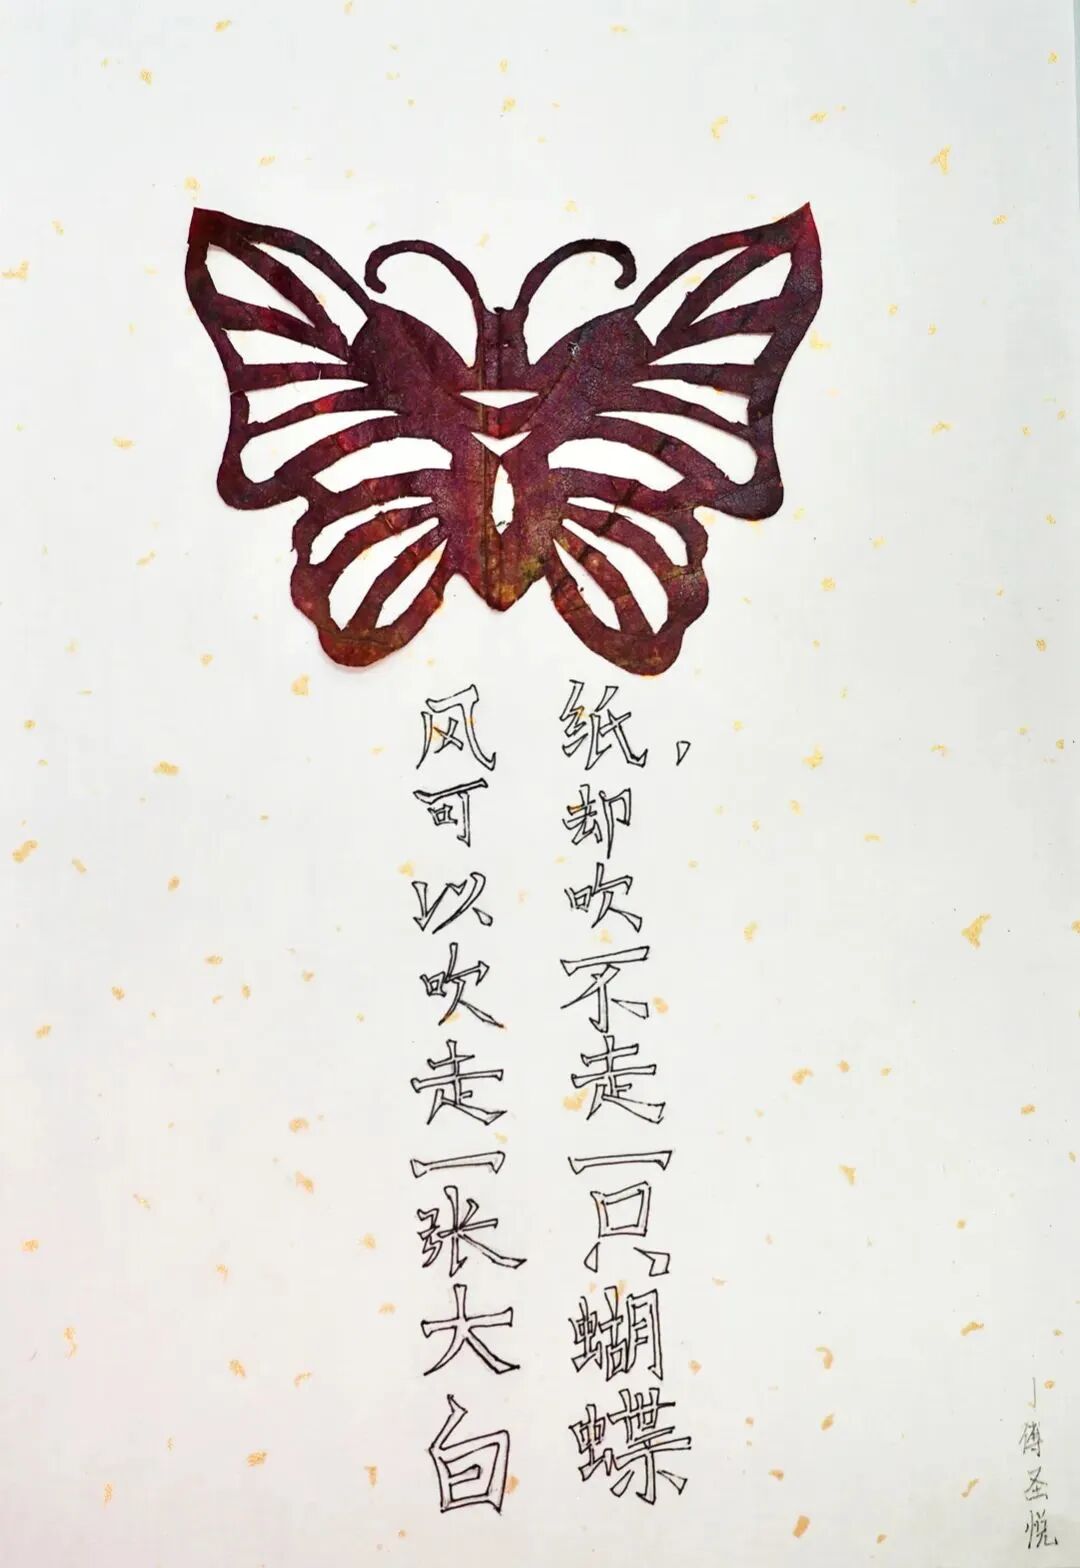 风可以吹走一张大白
纸，却吹不走一只蝴蝶
傅圣悦